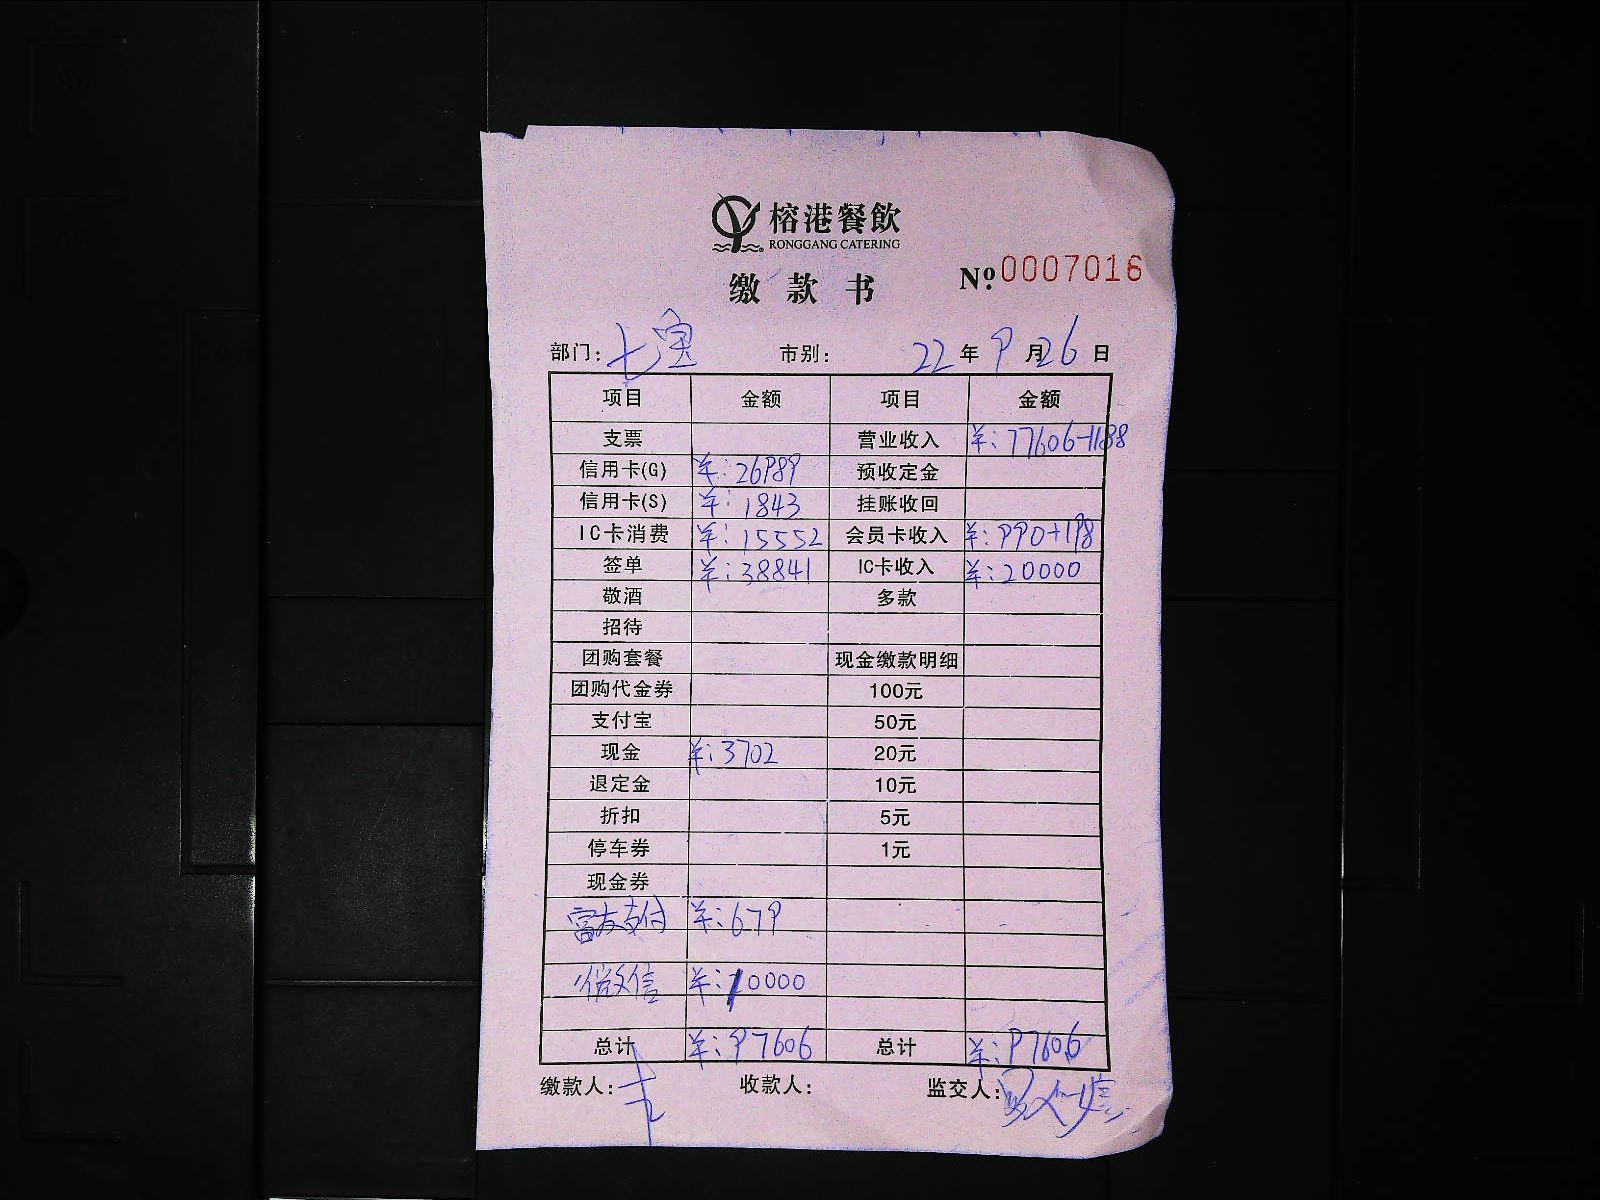 榕港餐飲
RONGGANG CATERING
缴款书 Nº:0007016
部门: 七宝 市别: 22年9月26日
项目 金额 项目 金额
支票 营业收入 ¥:77606-1188
信用卡(G) ¥:26989 预收定金
信用卡(S) ¥:1843 挂账收回
IC卡消费 ¥:15552 会员卡收入 ¥:990+198
签单 ¥:38841 IC卡收入 ¥:20000
敬酒 多款
招待
团购套餐 现金缴款明细
团购代金券 100元
支付宝 50元
现金 ¥:3702 20元
退定金 10元
折扣 5元
停车券 1元
现金券
富友支付 ¥:679
微信 ¥:10000
总计 ¥:97606 总计 ¥:97606
缴款人: 收款人: 监交人: